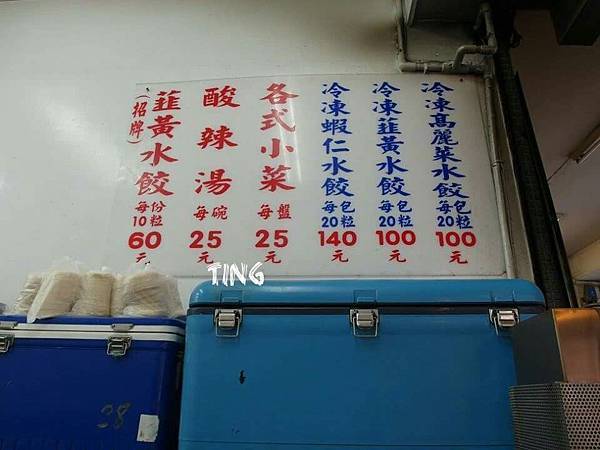 冷凍高麗菜水餃
每包
20粒
100
元
冷凍韮黃水餃
每包
20粒
100
元
冷凍蝦仁水餃
每包
20粒
140
元
各式小菜
每盤
25
元
酸辣湯
每碗
25
元
韮黃水餃
(招牌)
每份
10粒
60
元
TING
38